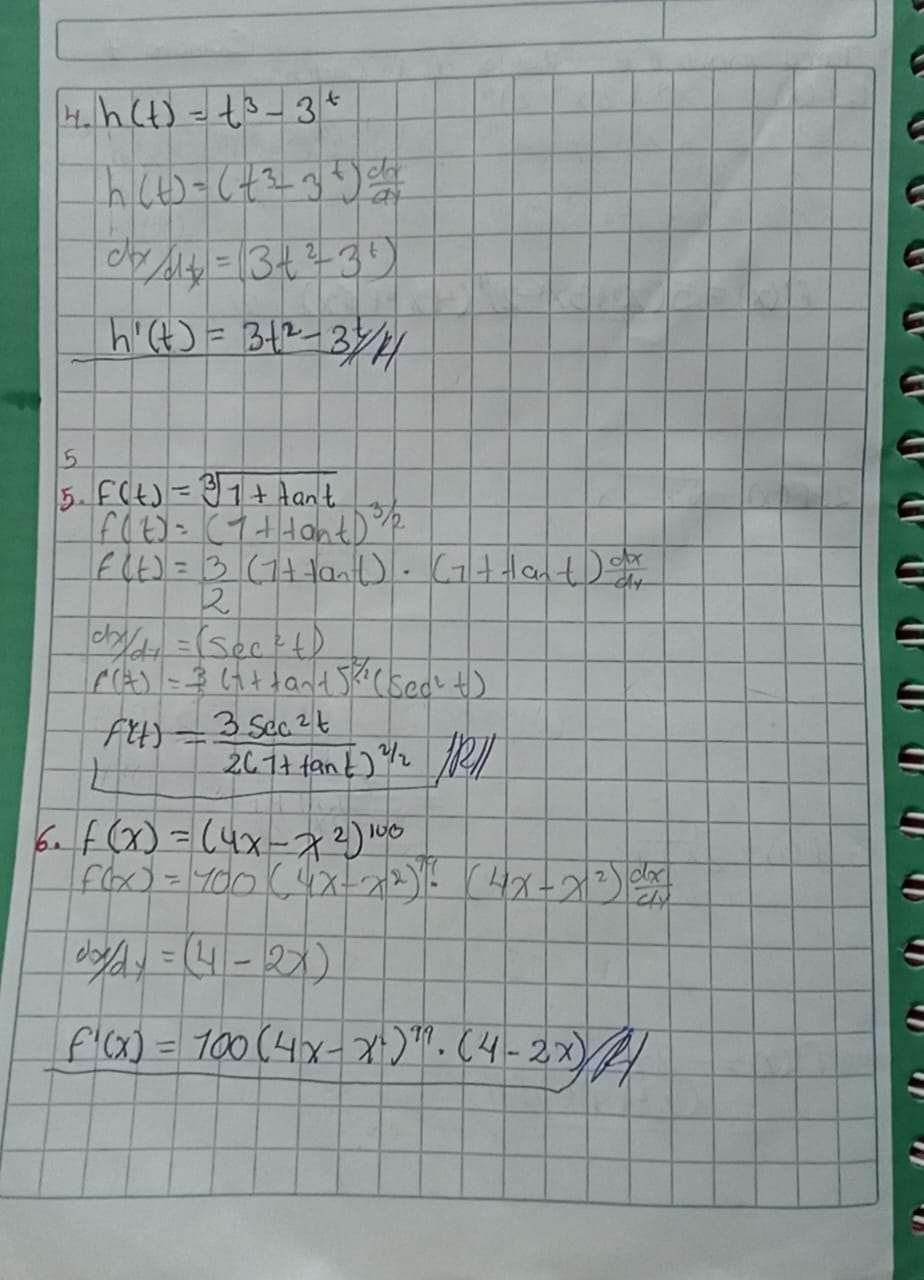 4. h(t) = t³ - 3^t
h(t) = (t³ - 3^t) dx/dy
dx/dy = (3t² - 3^t)
h'(t) = 3t² - 3^t //R//
5
5. f(t) = ∛(1 + tan t)
f(t) = (1 + tan t)^3/2
f(t) = 3/2 (1 + tan t) · (1 + tan t) dx/dy
dx/dy = (sec² t)
f'(t) = (1 + tan t) (sec² t)
f'(t) = 3 sec² t / 2(1 + tan t)^2/2 //R//
6. f(x) = (4x - x²)^100
f(x) = 100 (4x - x²)^99 · (4x - x²) dx/dy
dx/dy = (4 - 2x)
f'(x) = 100 (4x - x²)^99 · (4 - 2x) //R//